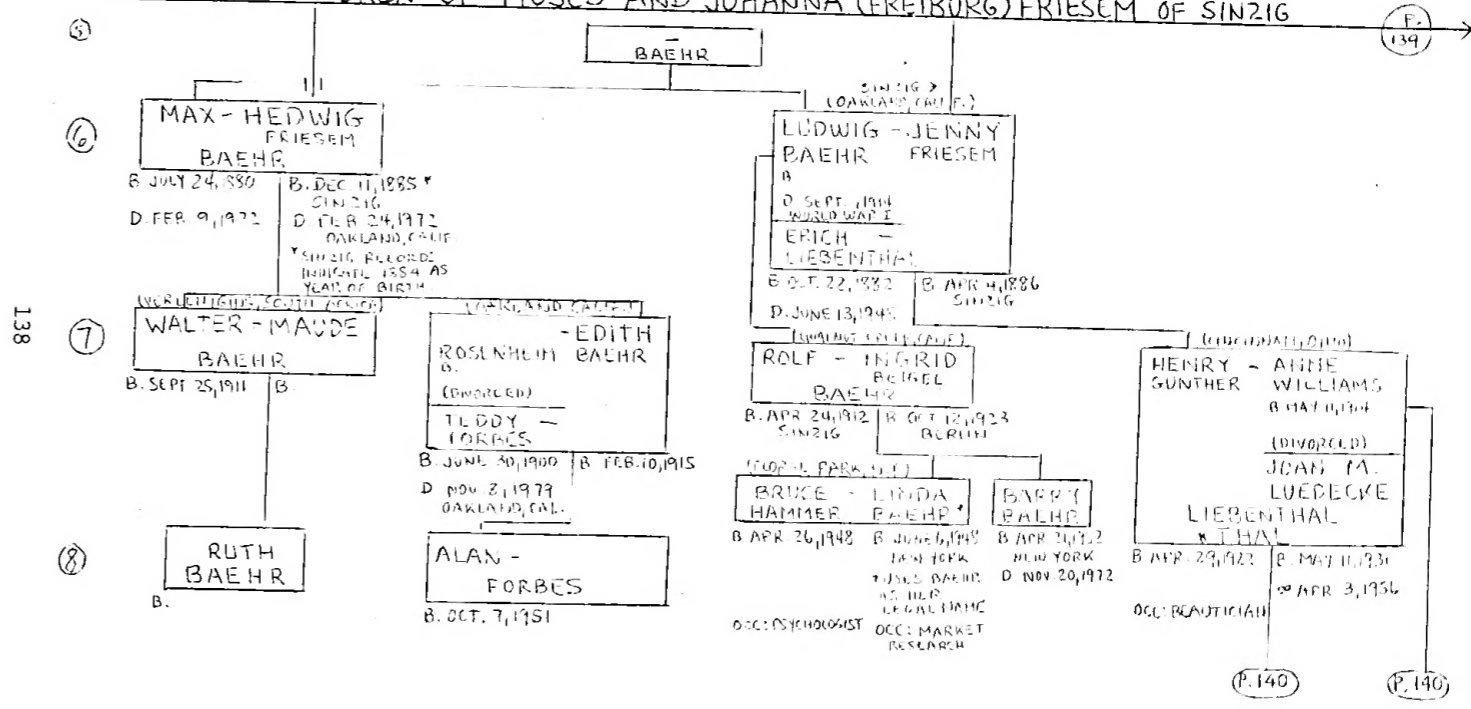 OF MOSES AND JOHANNA (FREIBURG) FRIESEM OF SINZIG
139
5
BAEHR
6
MAX - HEDWIG
FRIESEM
BAEHR
B. JULY 24, 1880
B. DEC. 11, 1885 *
SINZIG
D. FEB. 9, 1972
D. FEB 24, 1972
OAKLAND, CALIF.
* SINZIG RECORDS
INDICATE 1884 AS
YEAR OF BIRTH
SINZIG >
(OAKLAND, CALIF.)
LUDWIG - JENNY
BAEHR FRIESEM
B
D SEPT. , 1914
WORLD WAR I
ERICH -
LIEBENTHAL
B OCT. 22, 1882
B APR 4, 1886
SINZIG
D. JUNE 13, 1945
138
7
SOUTH AFRICA)
WALTER - MAUDE
BAEHR
B. SEPT 25, 1911
B.
(OAKLAND CALIF.)
- EDITH
ROSENHEIM BAEHR
B.
(DIVORCED)
TEDDY -
FORBES
B. JUNE 30, 1900
B FEB. 10, 1915
D NOV. 8, 1979
OAKLAND, CAL.
(WALNUT CREEK, CALIF.)
ROLF - INGRID
BEIGEL
BAEHR
B. APR 24, 1912
SINZIG
B OCT 12, 1923
BERLIN
(CINCINNATI, OHIO)
HENRY - ANNE
GUNTHER WILLIAMS
B MAY 11,
(DIVORCED)
JOAN M.
LUEDECKE
LIEBENTHAL
* THAL
B APR. 29, 1922
B. MAY 11, 1931
∞ APR 3, 1956
OCC: BEAUTICIAN
8
RUTH
BAEHR
B.
ALAN -
FORBES
B. OCT. 7, 1951
PARK, N.Y.)
BRUCE - LINDA
HAMMER BAEHR *
B APR. 26, 1948
B JUNE 6,
NEW YORK
* USES BAEHR
AS HER
LEGAL NAME
OCC: PSYCHOLOGIST
OCC: MARKET
RESEARCH
BARRY
BAEHR
B APR 21, 1952
NEW YORK
D NOV. 20, 1972
P. 140
P. 140